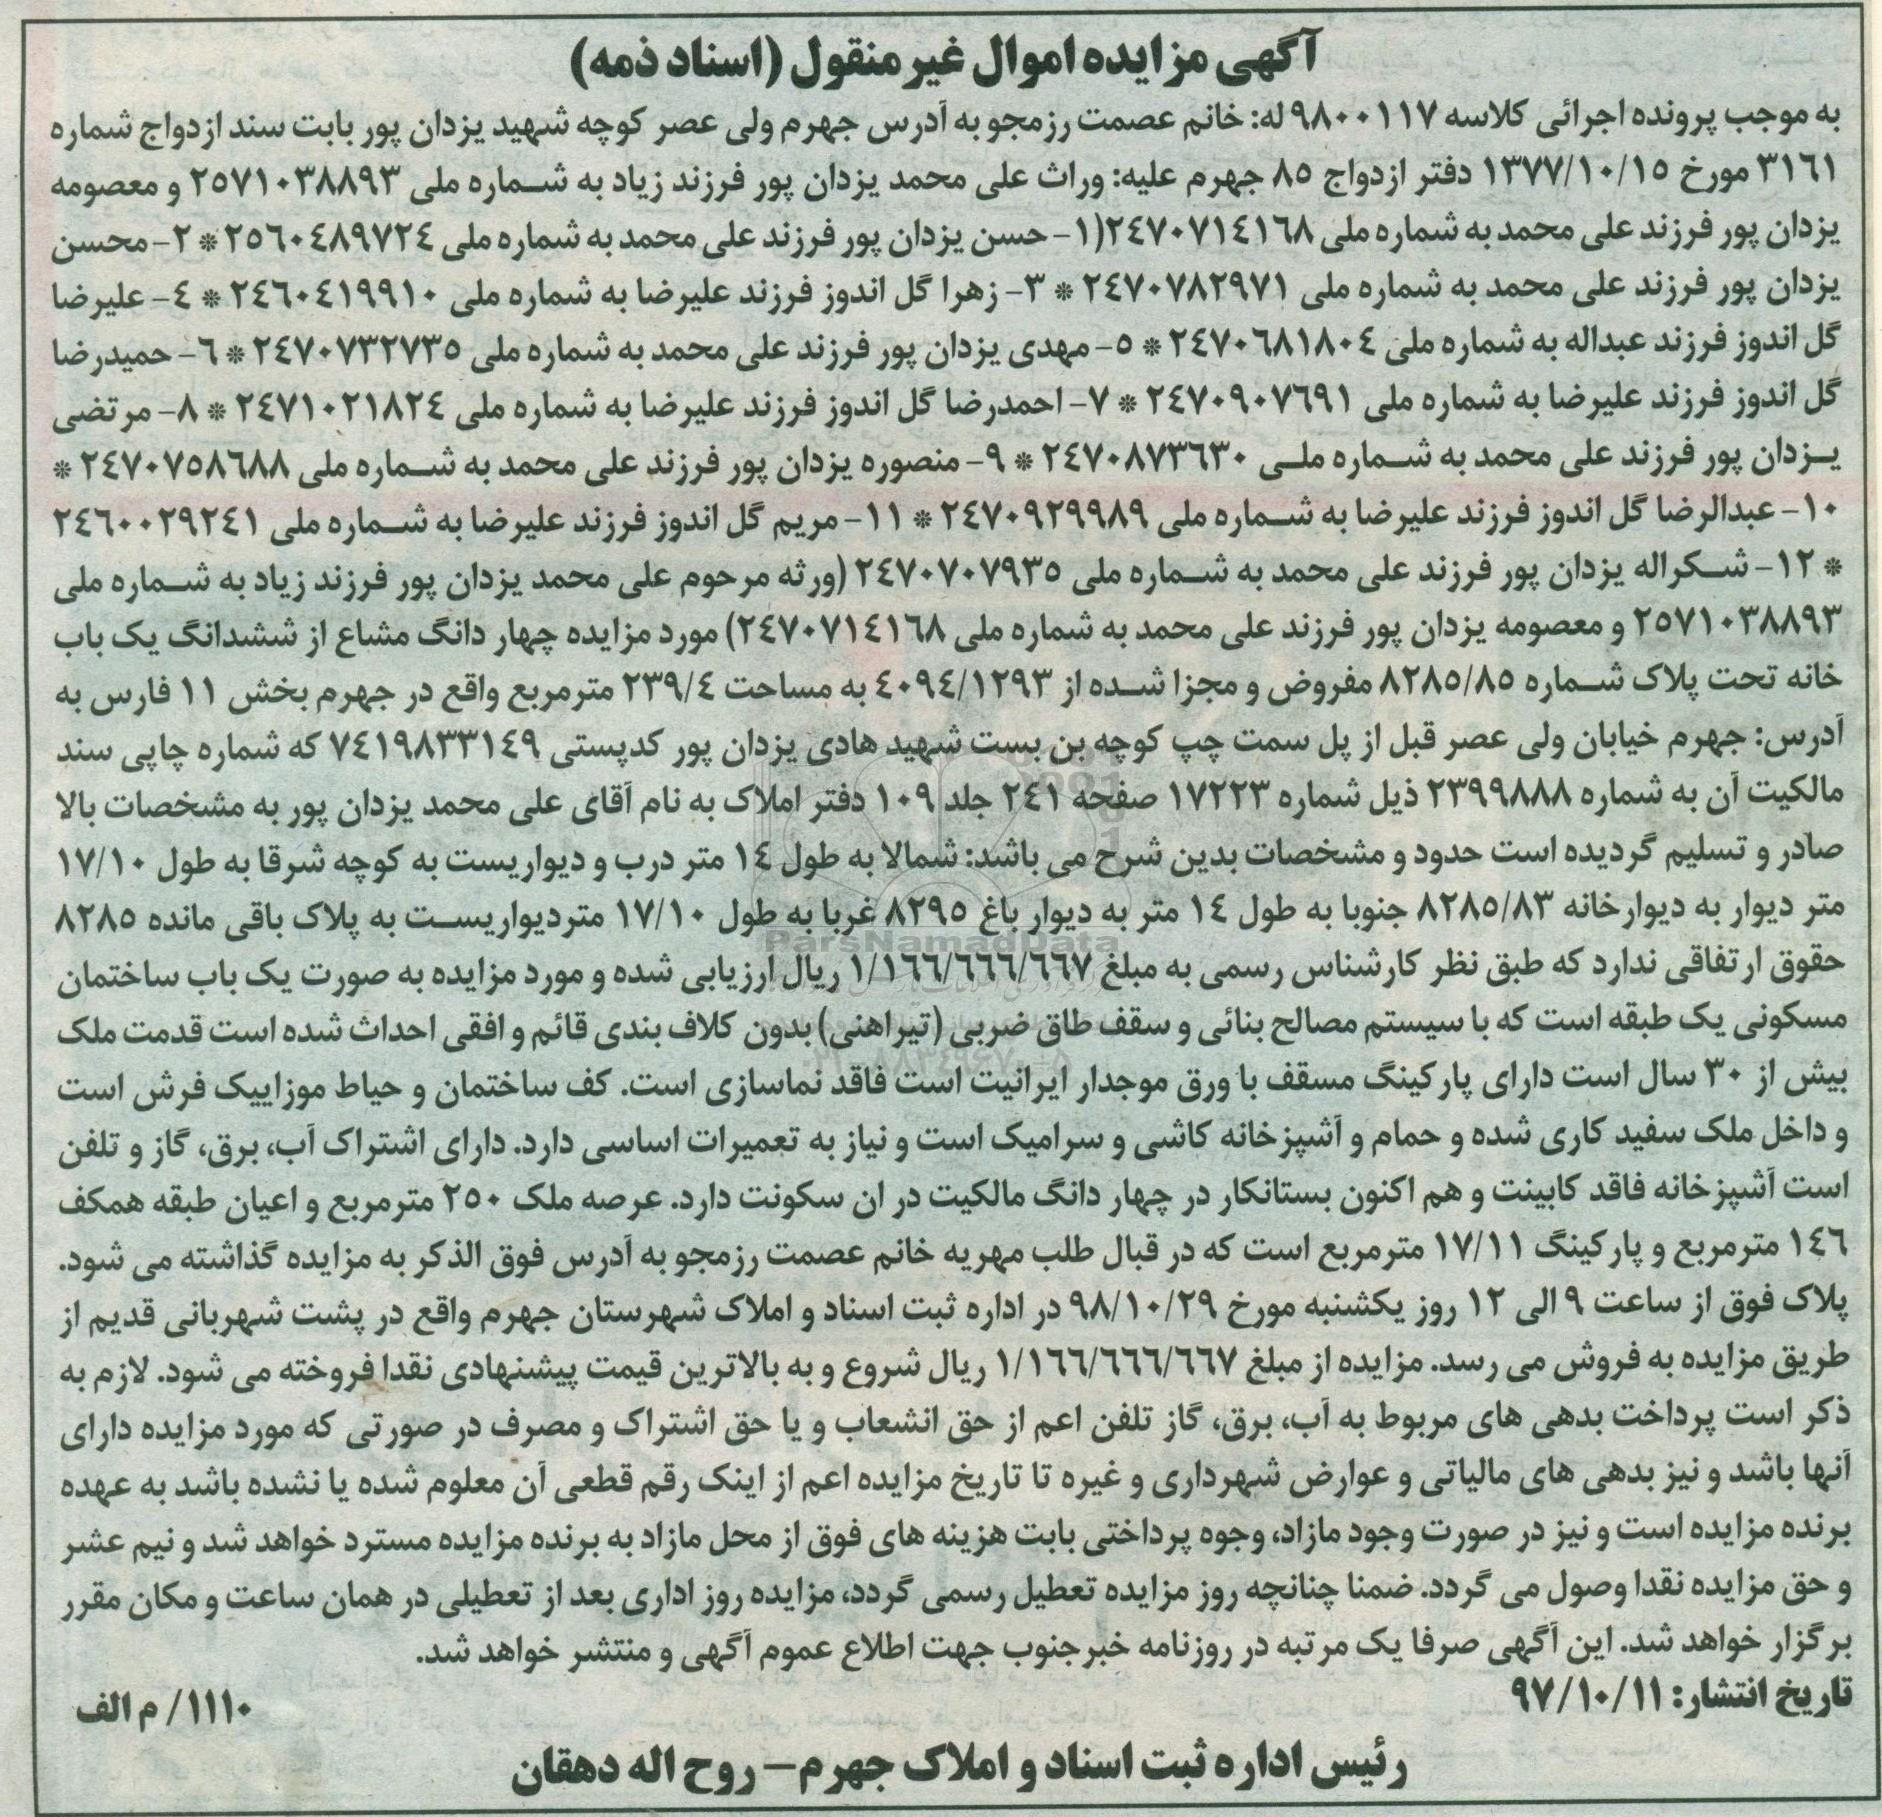 آگهی مزایده اموال غیر منقول (اسناد ذمه)
به موجب پرونده اجرائی کلاسه ۹۸۰۰۱۱۷ له: خانم عصمت رزمجو به آدرس جهرم ولی عصر کوچه شهید یزدان پور بابت سند ازدواج شماره
۳۱۶۱ مورخ ۱۳۷۷/۱۰/۱۵ دفتر ازدواج ۸۵ جهرم علیه: وراث علی محمد یزدان پور فرزند زیاد به شماره ملی ۲۵۷۱۰۳۸۸۹۳ و معصومه
یزدان پور فرزند علی محمد به شماره ملی ۲۴۷۰۷۱۴۱۶۸(۱- حسن یزدان پور فرزند علی محمد به شماره ملی ۲۵۶۰۴۸۹۷۲۴ * ۲- محسن
یزدان پور فرزند علی محمد به شماره ملی ۲۴۷۰۷۸۲۹۷۱ * ۳- زهرا گل اندوز فرزند علیرضا به شماره ملی ۲۴۶۰۴۱۹۹۱۰ * ۴- علیرضا
گل اندوز فرزند عبداله به شماره ملی ۲۴۷۰۶۸۱۸۰۴ * ۵- مهدی یزدان پور فرزند علی محمد به شماره ملی ۲۴۷۰۷۳۲۷۳۵ * ۶- حمیدرضا
گل اندوز فرزند علیرضا به شماره ملی ۲۴۷۰۹۰۷۶۹۱ * ۷- احمدرضا گل اندوز فرزند علیرضا به شماره ملی ۲۴۷۱۰۲۱۸۲۴ * ۸- مرتضی
یزدان پور فرزند علی محمد به شماره ملی ۲۴۷۰۸۷۳۶۳۰ * ۹- منصوره یزدان پور فرزند علی محمد به شماره ملی ۲۴۷۰۷۵۸۶۸۸ *
۱۰- عبدالرضا گل اندوز فرزند علیرضا به شماره ملی ۲۴۷۰۹۲۹۹۸۹ * ۱۱- مریم گل اندوز فرزند علیرضا به شماره ملی ۲۴۶۰۰۲۹۲۴۱
* ۱۲- شکراله یزدان پور فرزند علی محمد به شماره ملی ۲۴۷۰۷۰۷۹۳۵ (ورثه مرحوم علی محمد یزدان پور فرزند زیاد به شماره ملی
۲۵۷۱۰۳۸۸۹۳ و معصومه یزدان پور فرزند علی محمد به شماره ملی ۲۴۷۰۷۱۴۱۶۸) مورد مزایده چهار دانگ مشاع از ششدانگ یک باب
خانه تحت پلاک شماره ۸۲۸۵/۸۵ مفروض و مجزا شده از ۴۰۹۴/۱۲۹۳ به مساحت ۲۳۹/۴ مترمربع واقع در جهرم بخش ۱۱ فارس به
آدرس: جهرم خیابان ولی عصر قبل از پل سمت چپ کوچه بن بست شهید هادی یزدان پور کدپستی ۷۴۱۹۸۳۳۱۴۹ که شماره چاپی سند
مالکیت آن به شماره ۲۳۹۹۸۸۸ ذیل شماره ۱۷۲۲۳ صفحه ۲۴۱ جلد ۱۰۹ دفتر املاک به نام آقای علی محمد یزدان پور به مشخصات بالا
صادر و تسلیم گردیده است حدود و مشخصات بدین شرح می باشد: شمالا به طول ۱۴ متر درب و دیواریست به کوچه شرقا به طول ۱۷/۱۰
متر دیوار به دیوارخانه ۸۲۸۵/۸۳ جنوبا به طول ۱۴ متر به دیوار باغ ۸۲۹۵ غربا به طول ۱۷/۱۰ متردیواریست به پلاک باقی مانده ۸۲۸۵
حقوق ارتفاقی ندارد که طبق نظر کارشناس رسمی به مبلغ ۱/۱۶۶/۶۶۶/۶۶۷ ریال ارزیابی شده و مورد مزایده به صورت یک باب ساختمان
مسکونی یک طبقه است که با سیستم مصالح بنائی و سقف طاق ضربی (تیراهنی) بدون کلاف بندی قائم و افقی احداث شده است قدمت ملک
بیش از ۳۰ سال است دارای پارکینگ مسقف با ورق موجدار ایرانیت است فاقد نماسازی است. کف ساختمان و حیاط موزاییک فرش است
و داخل ملک سفید کاری شده و حمام و آشپزخانه کاشی و سرامیک است و نیاز به تعمیرات اساسی دارد. دارای اشتراک آب، برق، گاز و تلفن
است آشپزخانه فاقد کابینت و هم اکنون بستانکار در چهار دانگ مالکیت در ان سکونت دارد. عرصه ملک ۲۵۰ مترمربع و اعیان طبقه همکف
۱۴۶ مترمربع و پارکینگ ۱۷/۱۱ مترمربع است که در قبال طلب مهریه خانم عصمت رزمجو به آدرس فوق الذکر به مزایده گذاشته می شود.
پلاک فوق از ساعت ۹ الی ۱۲ روز یکشنبه مورخ ۹۸/۱۰/۲۹ در اداره ثبت اسناد و املاک شهرستان جهرم واقع در پشت شهربانی قدیم از
طریق مزایده به فروش می رسد. مزایده از مبلغ ۱/۱۶۶/۶۶۶/۶۶۷ ریال شروع و به بالاترین قیمت پیشنهادی نقدا فروخته می شود. لازم به
ذکر است پرداخت بدهی های مربوط به آب، برق، گاز تلفن اعم از حق انشعاب و یا حق اشتراک و مصرف در صورتی که مورد مزایده دارای
آنها باشد و نیز بدهی های مالیاتی و عوارض شهرداری و غیره تا تاریخ مزایده اعم از اینک رقم قطعی آن معلوم شده یا نشده باشد به عهده
برنده مزایده است و نیز در صورت وجود مازاد، وجوه پرداختی بابت هزینه های فوق از محل مازاد به برنده مزایده مسترد خواهد شد و نیم عشر
و حق مزایده نقدا وصول می گردد. ضمنا چنانچه روز مزایده تعطیل رسمی گردد، مزایده روز اداری بعد از تعطیلی در همان ساعت و مکان مقرر
برگزار خواهد شد. این آگهی صرفا یک مرتبه در روزنامه خبرجنوب جهت اطلاع عموم آگهی و منتشر خواهد شد.
تاریخ انتشار: ۹۷/۱۰/۱۱
۱۱۱۰/ م الف
رئیس اداره ثبت اسناد و املاک جهرم – روح اله دهقان
ParsNamadData